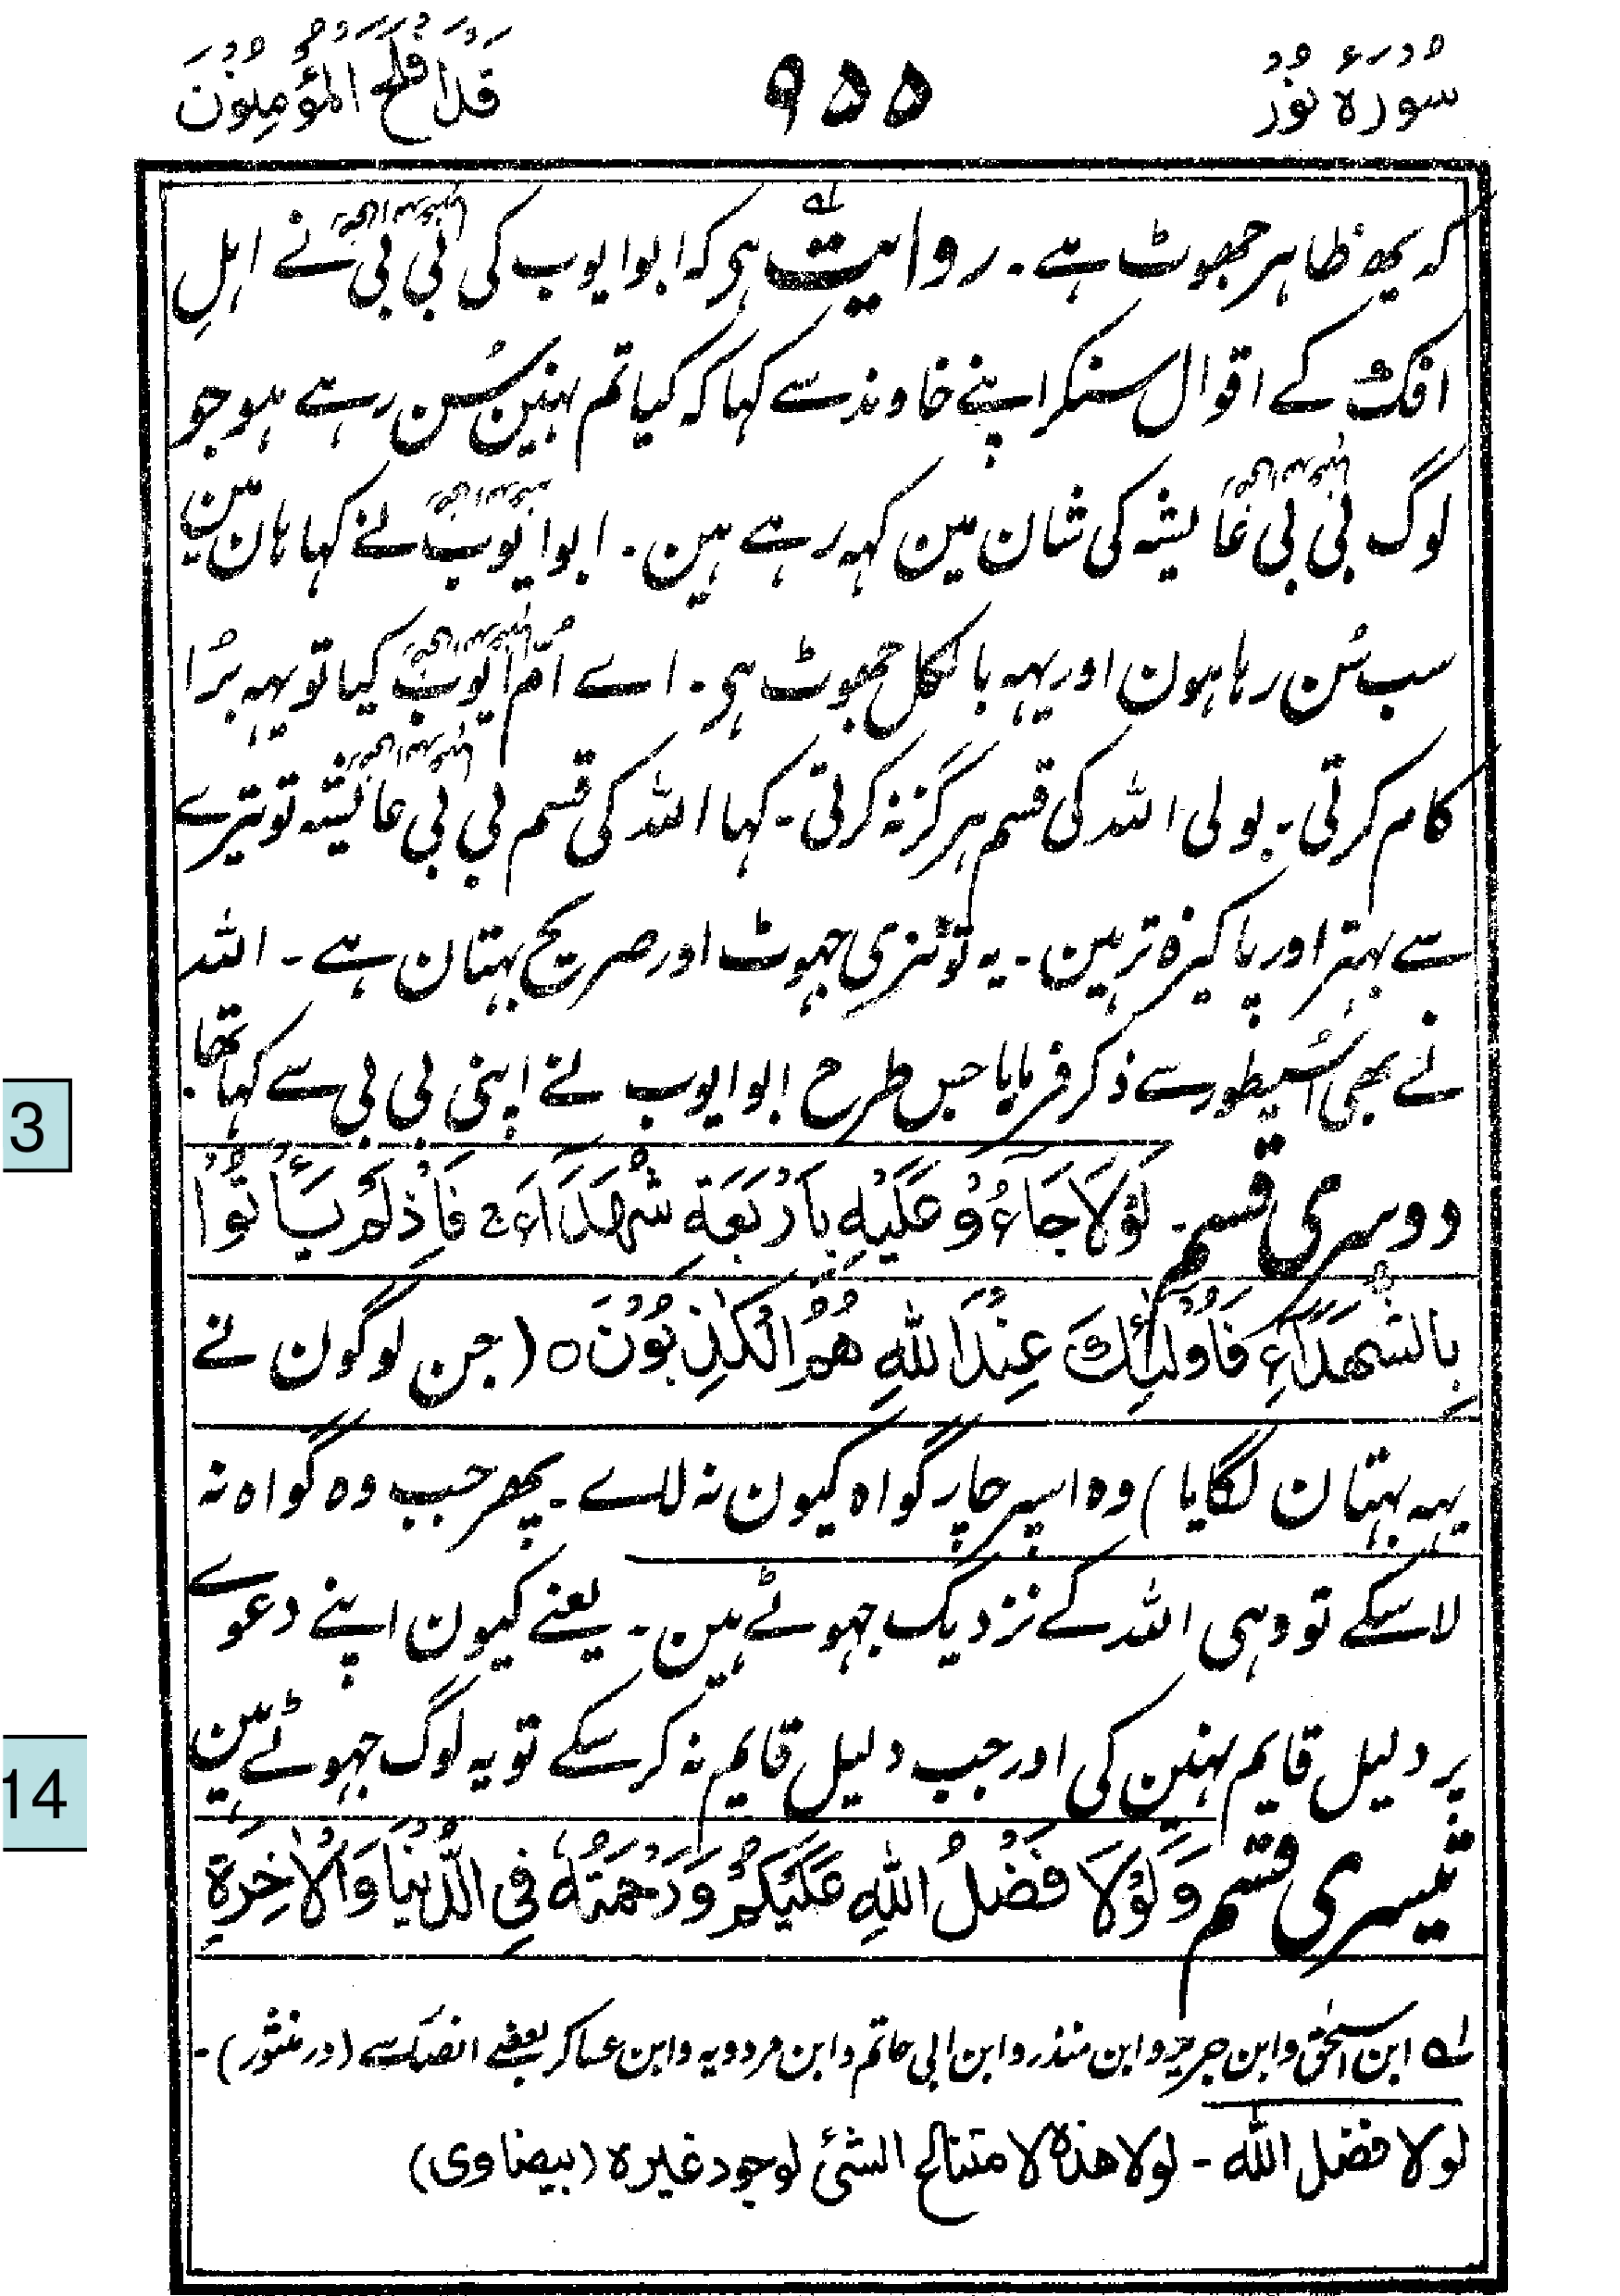 سُوْرَۂ نُوْر
۹۵۵
قَدْ اَفْلَحَ الْمُؤْمِنُوْنَ
کہ یہ ظاہر جھوٹ ہے۔ روایت ہی کہ ابو ایوب کی بی بی نے اہلِ
افک کے اقوال سنکر اپنے خاوند سے کہا کہ کیا تم نہین سُن رہے ہو جو
لوگ بی بی عایشہ کی شان مین کہہ رہے ہین۔ ابو ایوب نے کہا ہان مین
سب سُن رہا ہون اور یہہ بالکل جھوٹ ہی۔ اے اُمّ ایوب کیا تو یہہ برُا
کام کرتی۔ بولی اللہ کی قسم ہرگز نہ کرتی۔ کہا اللہ کی قسم بی بی عایشہ تو تیرے
سے بہتر اور پاکیزہ تر ہین۔ یہ تو نری جہوٹ اور صریح بہتان ہے۔ اللہ
نے بھی اسُیطور سے ذکر فرمایا جس طرح ابو ایوب نے اپنی بی بی سے کہا تھا۔
3
دوسری قسم۔ لَوْلَا جَآءُوْ عَلَيْهِ بِاَرْبَعَةِ شُهَدَآءَ فَاِذْ لَمْ يَاْتُوْا
بِالشُّهَدَآءِ فَاُولٰٓئِكَ عِنْدَ اللّٰهِ هُمُ الْكٰذِبُوْنَ ○ (جن لوگون نے
یہہ بہتان لگایا) وہ اسپر چار گواہ کیون نہ لائے۔ پھر جب وہ گواہ نہ
لاسکے تو وہی اللہ کے نزدیک جہوٹے ہین۔ یعنے کیون اپنے دعوے
پر دلیل قایم نہین کی اور جب دلیل قایم نہ کرسکے تو یہ لوگ جہوٹے ہین
14
تیسری قسم وَلَوْلَا فَضْلُ اللّٰهِ عَلَيْكُمْ وَرَحْمَتُهٗ فِى الدُّنْيَا وَالْاٰخِرَةِ
لہ ابن اسحٰق وابن جریر وابن منذر وابن ابی حاتم وابن مردویہ وابن عساکر بعضے انصار سے (در منثور)۔
لولا فضل اللہ۔ لولا هذہ لامتناع الشئ لوجود غیرہ (بیضاوی)